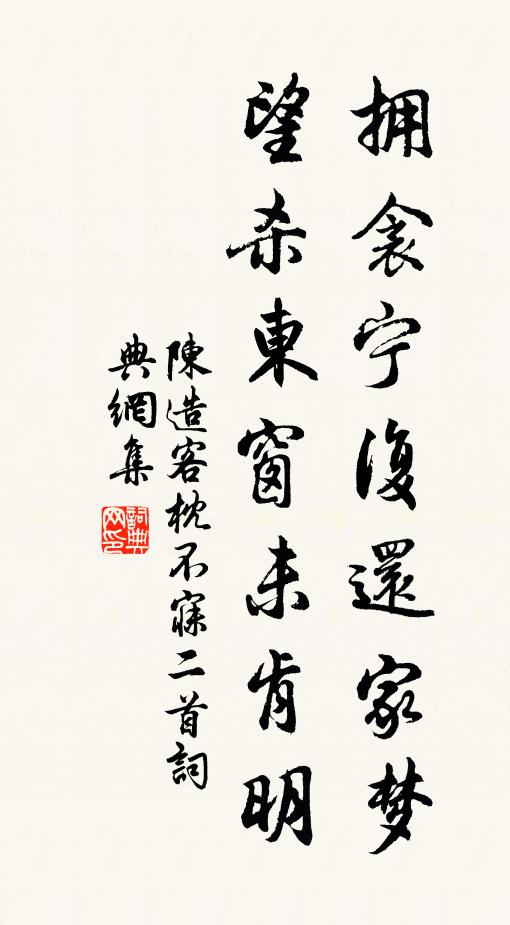 拥衾宁復還家梦
望杀東窗未肯明
陳造客枕不寐二首詞
典網集
詞典
网印